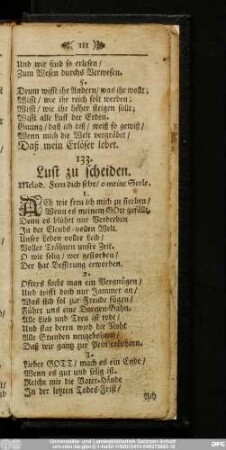 111
Und wir sind so erlesen/
Zum Wesen durchs Verwesen.
5.
Drum wisst ihr Andern/ was ihr wollt;
Wisst/ wie ihr reich solt werden;
Wisst/ wie ihr höher steigen sollt;
Wisst alle Lust der Erden.
Gnung/ daß ich deß/ weiß so gewiß/
Wenn mich die Welt vergräbet/
Daß mein Erlöser lebet.
133.
Lust zu scheiden.
Melod. Freu dich sehr/ o meine Seele.
1.
ACh wie freu ich mich zu sterben/
Wenn es meinem GOtt gefällt,
Denn es blühet nur Verderben
In der Elends-vollen Welt.
Unser Leben voller Leid/
Voller Thränen unsre Zeit.
O wie selig/ wer gestorben/
Der hat Besserung erworben.
2.
Offters sucht man ein Vergnügen/
Und trifft doch nur Jammer an/
Was sich sol zur Freude fügen/
Führt uns eine Dornen-Bahn.
Alle Lieb und Treu ist
Und statt deren wird die Noht
Alle Stunden neugebohren/
Daß wir gantz zur Pein erkohren.
3.
Lieber GOTT/ mach es ein Ende/
Wenn es gut und selig ist.
Reiche mir die Vater-Hände
In der letzten Todes-Frist/